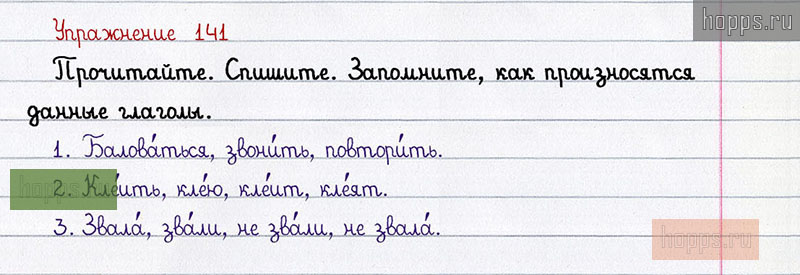 hopps.ru
Упражнение 141
Прочитайте. Спишите. Запомните, как произносятся
данные глаголы.
1. Балова́ться, звони́ть, повтори́ть.
hopps
2. Кле́ить, кле́ю, кле́ит, кле́ят.
3. Звала́, зва́ли, не зва́ли, не звала́.
hopps.ru